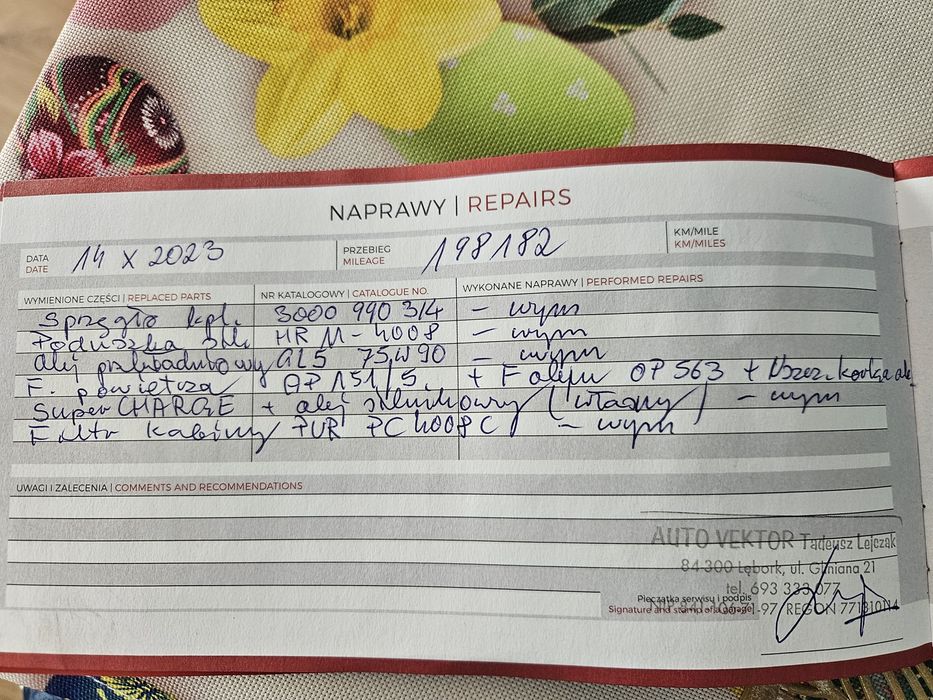 NAPRAWY | REPAIRS
DATA
DATE
14 X 2023
PRZEBIEG
MILEAGE
198182
KM/MILE
KM/MILES
WYMIENIONE CZĘŚCI | REPLACED PARTS
NR KATALOGOWY | CATALOGUE NO.
WYKONANE NAPRAWY | PERFORMED REPAIRS
Sprzęgło kpl. 3000 990 314 - wym
Poduszka silni HR M-4008 - wym
olej przekładniowy GL5 75W90 - wym
F. powietrza AP 151/5. + F oleju OP 563 + Uszcz. korka ole
Super CHARGE + olej silnikowy (własny) - wym
Filtr kabiny PUR PC 4008 C - wym
UWAGI I ZALECENIA | COMMENTS AND RECOMMENDATIONS
AUTO VEKTOR Tadeusz Lejczak
84-300 Lębork, ul. Gliniana 21
tel. 693 333 077
Pieczątka serwisu i podpis
Signature and stamp of a garage
-97, REGON